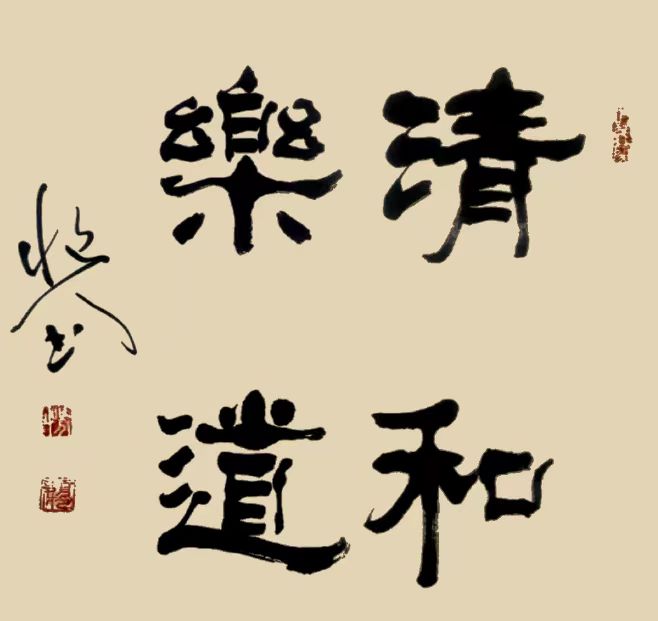 清和
樂道